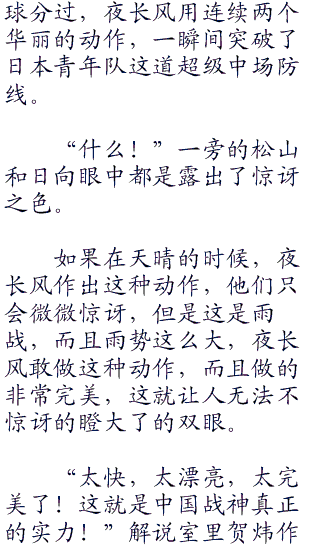 球分过，夜长风用连续两个
华丽的动作，一瞬间突破了
日本青年队这道超级中场防
线。
“什么！”一旁的松山
和日向眼中都是露出了惊讶
之色。
如果在天晴的时候，夜
长风作出这种动作，他们只
会微微惊讶，但是这是雨
战，而且雨势这么大，夜长
风敢做这种动作，而且做的
非常完美，这就让人无法不
惊讶的瞪大了的双眼。
“太快，太漂亮，太完
美了！这就是中国战神真正
的实力！”解说室里贺炜作